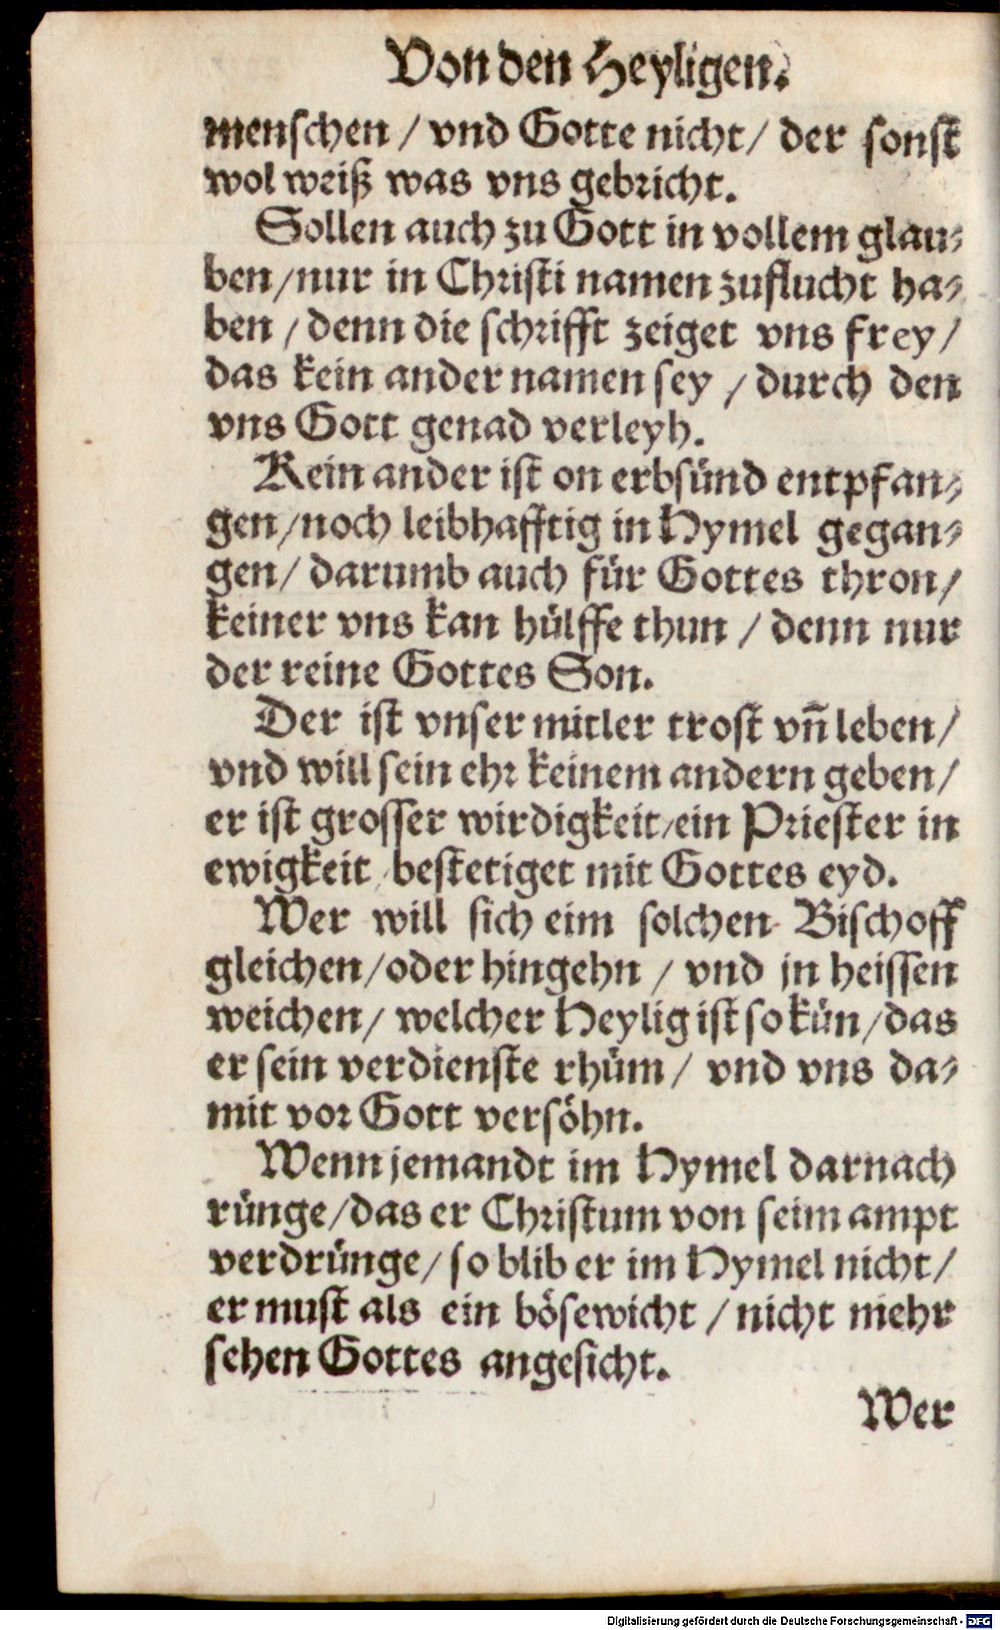 Von den Heyligen.
menschen / vnd Gotte nicht / der sonst
wol weiß was vns gebricht.
Sollen auch zu Gott in vollem glau⸗
ben / nur in Christi namen zuflucht ha⸗
ben / denn die schrifft zeiget vns frey /
das kein ander namen sey / durch den
vns Gott genad verleyh.
Kein ander ist on erbsünd entpfan⸗
gen / noch leibhafftig in Hymel gegan⸗
gen / darumb auch für Gottes thron /
keiner vns kan hülffe thun / denn nur
der reine Gottes Son.
Der ist vnser mitler trost vñ leben /
vnd will sein ehr keinem andern geben /
er ist grosser wirdigkeit / ein Priester in
ewigkeit / bestetiget mit Gottes eyd.
Wer will sich eim solchen Bischoff
gleichen / oder hingehn / vnd jn heissen
weichen / welcher Heylig ist so kün / das
er sein verdienste rhüm / vnd vns da⸗
mit vor Gott versöhn.
Wenn jemandt im Hymel darnach
rünge / das er Christum von seim ampt
verdrünge / so blib er im Hymel nicht /
er must als ein bösewicht / nicht mehr
sehen Gottes angesicht.
Wer
Digitalisierung gefördert durch die Deutsche Forschungsgemeinschaft - DFG